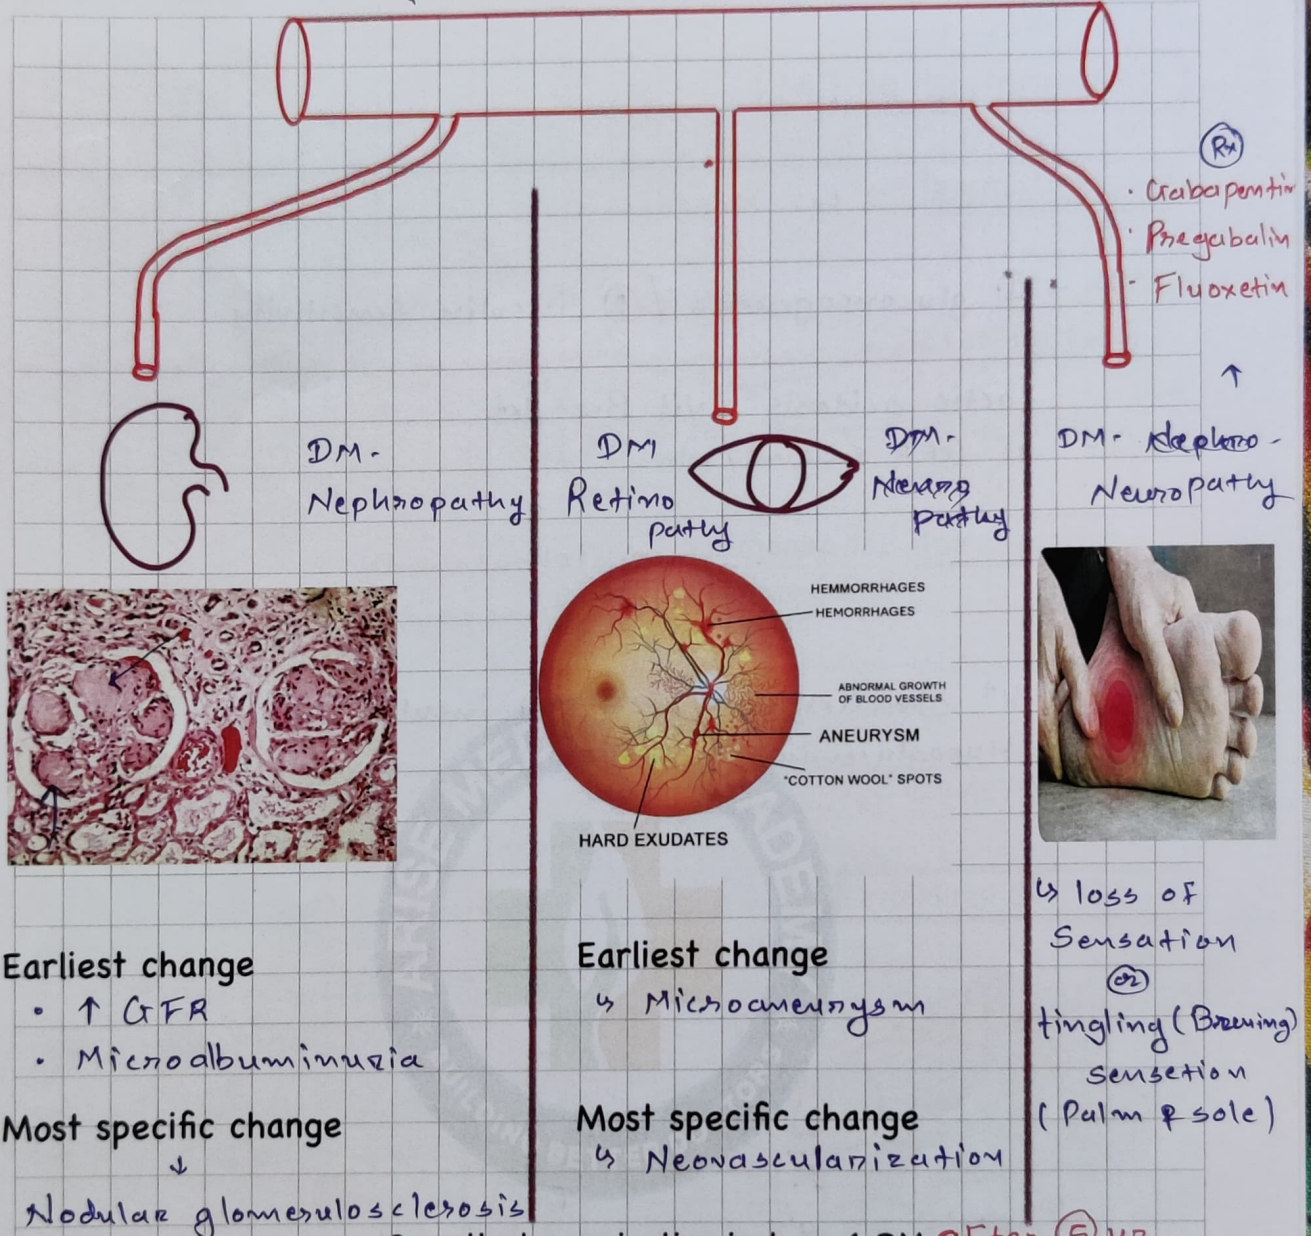 Rx
· Gabapentin
· Pregabalin
· Fluoxetin
↑
DM-
Nephropathy
DM
Retino
pathy
DM-
pathy
DM- Nephro-
Neuropathy
HEMMORRHAGES
HEMORRHAGES
ABNORMAL GROWTH
OF BLOOD VESSELS
ANEURYSM
"COTTON WOOL" SPOTS
HARD EXUDATES
Earliest change
· ↑ GFR
· Microalbuminuria
Most specific change
↓
Nodular glomerulosclerosis
Earliest change
↳ Microaneurysm
Most specific change
↳ Neovascularization
↳ loss of
Sensation
or
tingling (Brening)
sensetion
(Palm & sole)